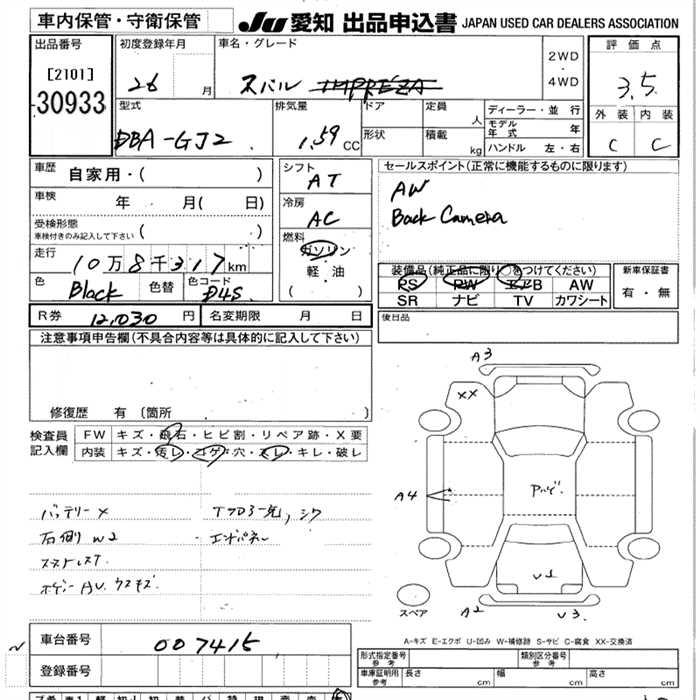 車内保管・守衛保管
JU 愛知 出品申込書 JAPAN USED CAR DEALERS ASSOCIATION
出品番号
[2101]
30933
初度登録年月
26 月
車名・グレード
スバル IMPREZA
2WD
・
4WD
評価点
3.5
外装 内装
C C
型式
DBA-GJ2
排気量
1.59 CC
ドア
形状
定員 人
積載 kg
ディーラー・並 行
モデル年式 年
ハンドル 左・右
車歴 自家用・( )
車検 年 月( 日)
受検形態
車検付きのみ記入して下さい ( )
走行 10万8千317km
色 Black 色替 色コード D4S
シフト
AT
冷房
AC
燃料
ガソリン
軽・油
( )
セールスポイント(正常に機能するものに限ります)
AW
Back Camera
装備品(純正品に限り○をつけてください)
PS PW エアB AW
SR ナビ TV カワシート
新車保証書
有・無
R券 12,030 円 名変期限 月 日
後日品
注意事項申告欄(不具合内容等は具体的に記入して下さい)
修復歴 有 (箇所 )
検査員
記入欄
FW キズ・飛石・ヒビ割・リペア跡・X要
内装 キズ・汚レ・コゲ・穴・スレ・キレ・破レ
バッテリーX
右側W2
A3
XX
A4
U1
A2
U3
スペア
A-キズ E-エクボ U-凹み W-補修跡 S-サビ C-腐食 XX-交換済
車台番号 007415
登録番号
形式指定番号
参考
類別区分番号
参考
車庫証明用
参考
長さ cm 幅 cm 高さ cm